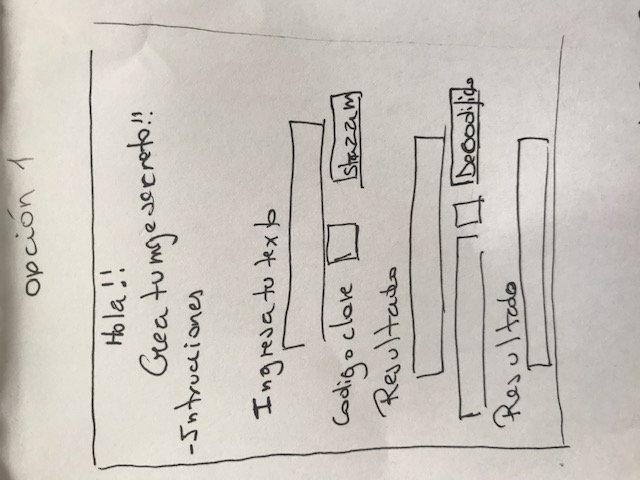 opción 1
Hola!!
Crea tu msge secreto!!
-Intrucciones
Ingresa tu texto
Codigo clave
Shazzam
Resultado
Decodific
Resultado